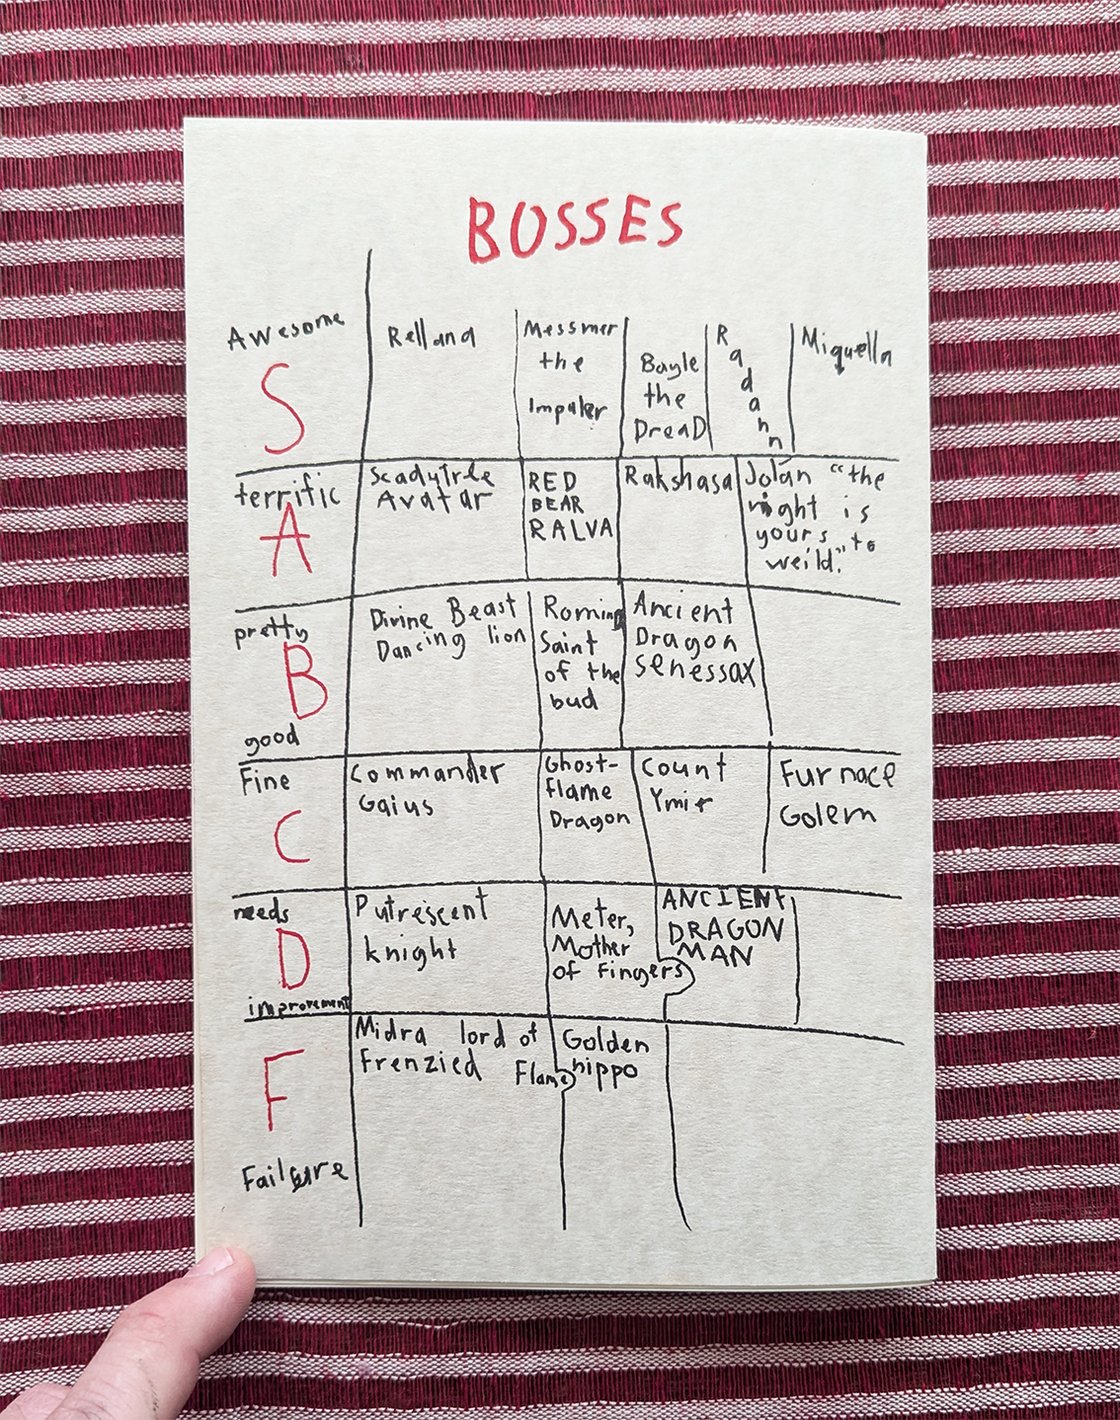 BOSSES
Awesome
S
Rellana
Messmer
the
Impaler
Bayle
the
DreaD
Radahn
Miquella
terrific
A
Scadytrle
Avatar
RED
BEAR
RALVA
Rakshasa
Jolán “the
night is
yours to
weild.”
pretty
B
good
Divine Beast
Dancing lion
Roming
Saint
of the
bud
Ancient
Dragon
Senessax
Fine
C
Commander
Gaius
Ghost-
flame
Dragon
Count
Ymir
Furnace
Golem
needs
D
improvement
Putrescent
knight
Meter,
Mother
of Fingers
ANCIENT
DRAGON
MAN
F
Failure
Midra lord of
Frenzied Flame
Golden
hippo